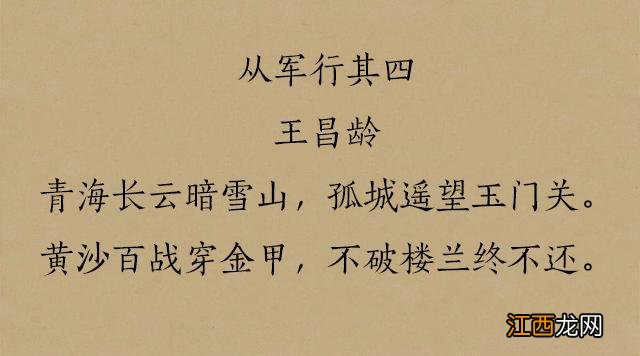 从军行其四
王昌龄
青海长云暗雪山，孤城遥望玉门关。
黄沙百战穿金甲，不破楼兰终不还。
江西龙网